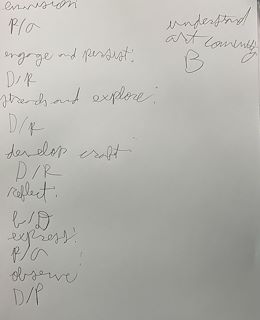 envision
P/a
engage and persist:
D/R
strech and explore:
D/R
develop craft
D/R
reflect:
b/D
express:
P/a
observe
D/P
understand
art coming
B